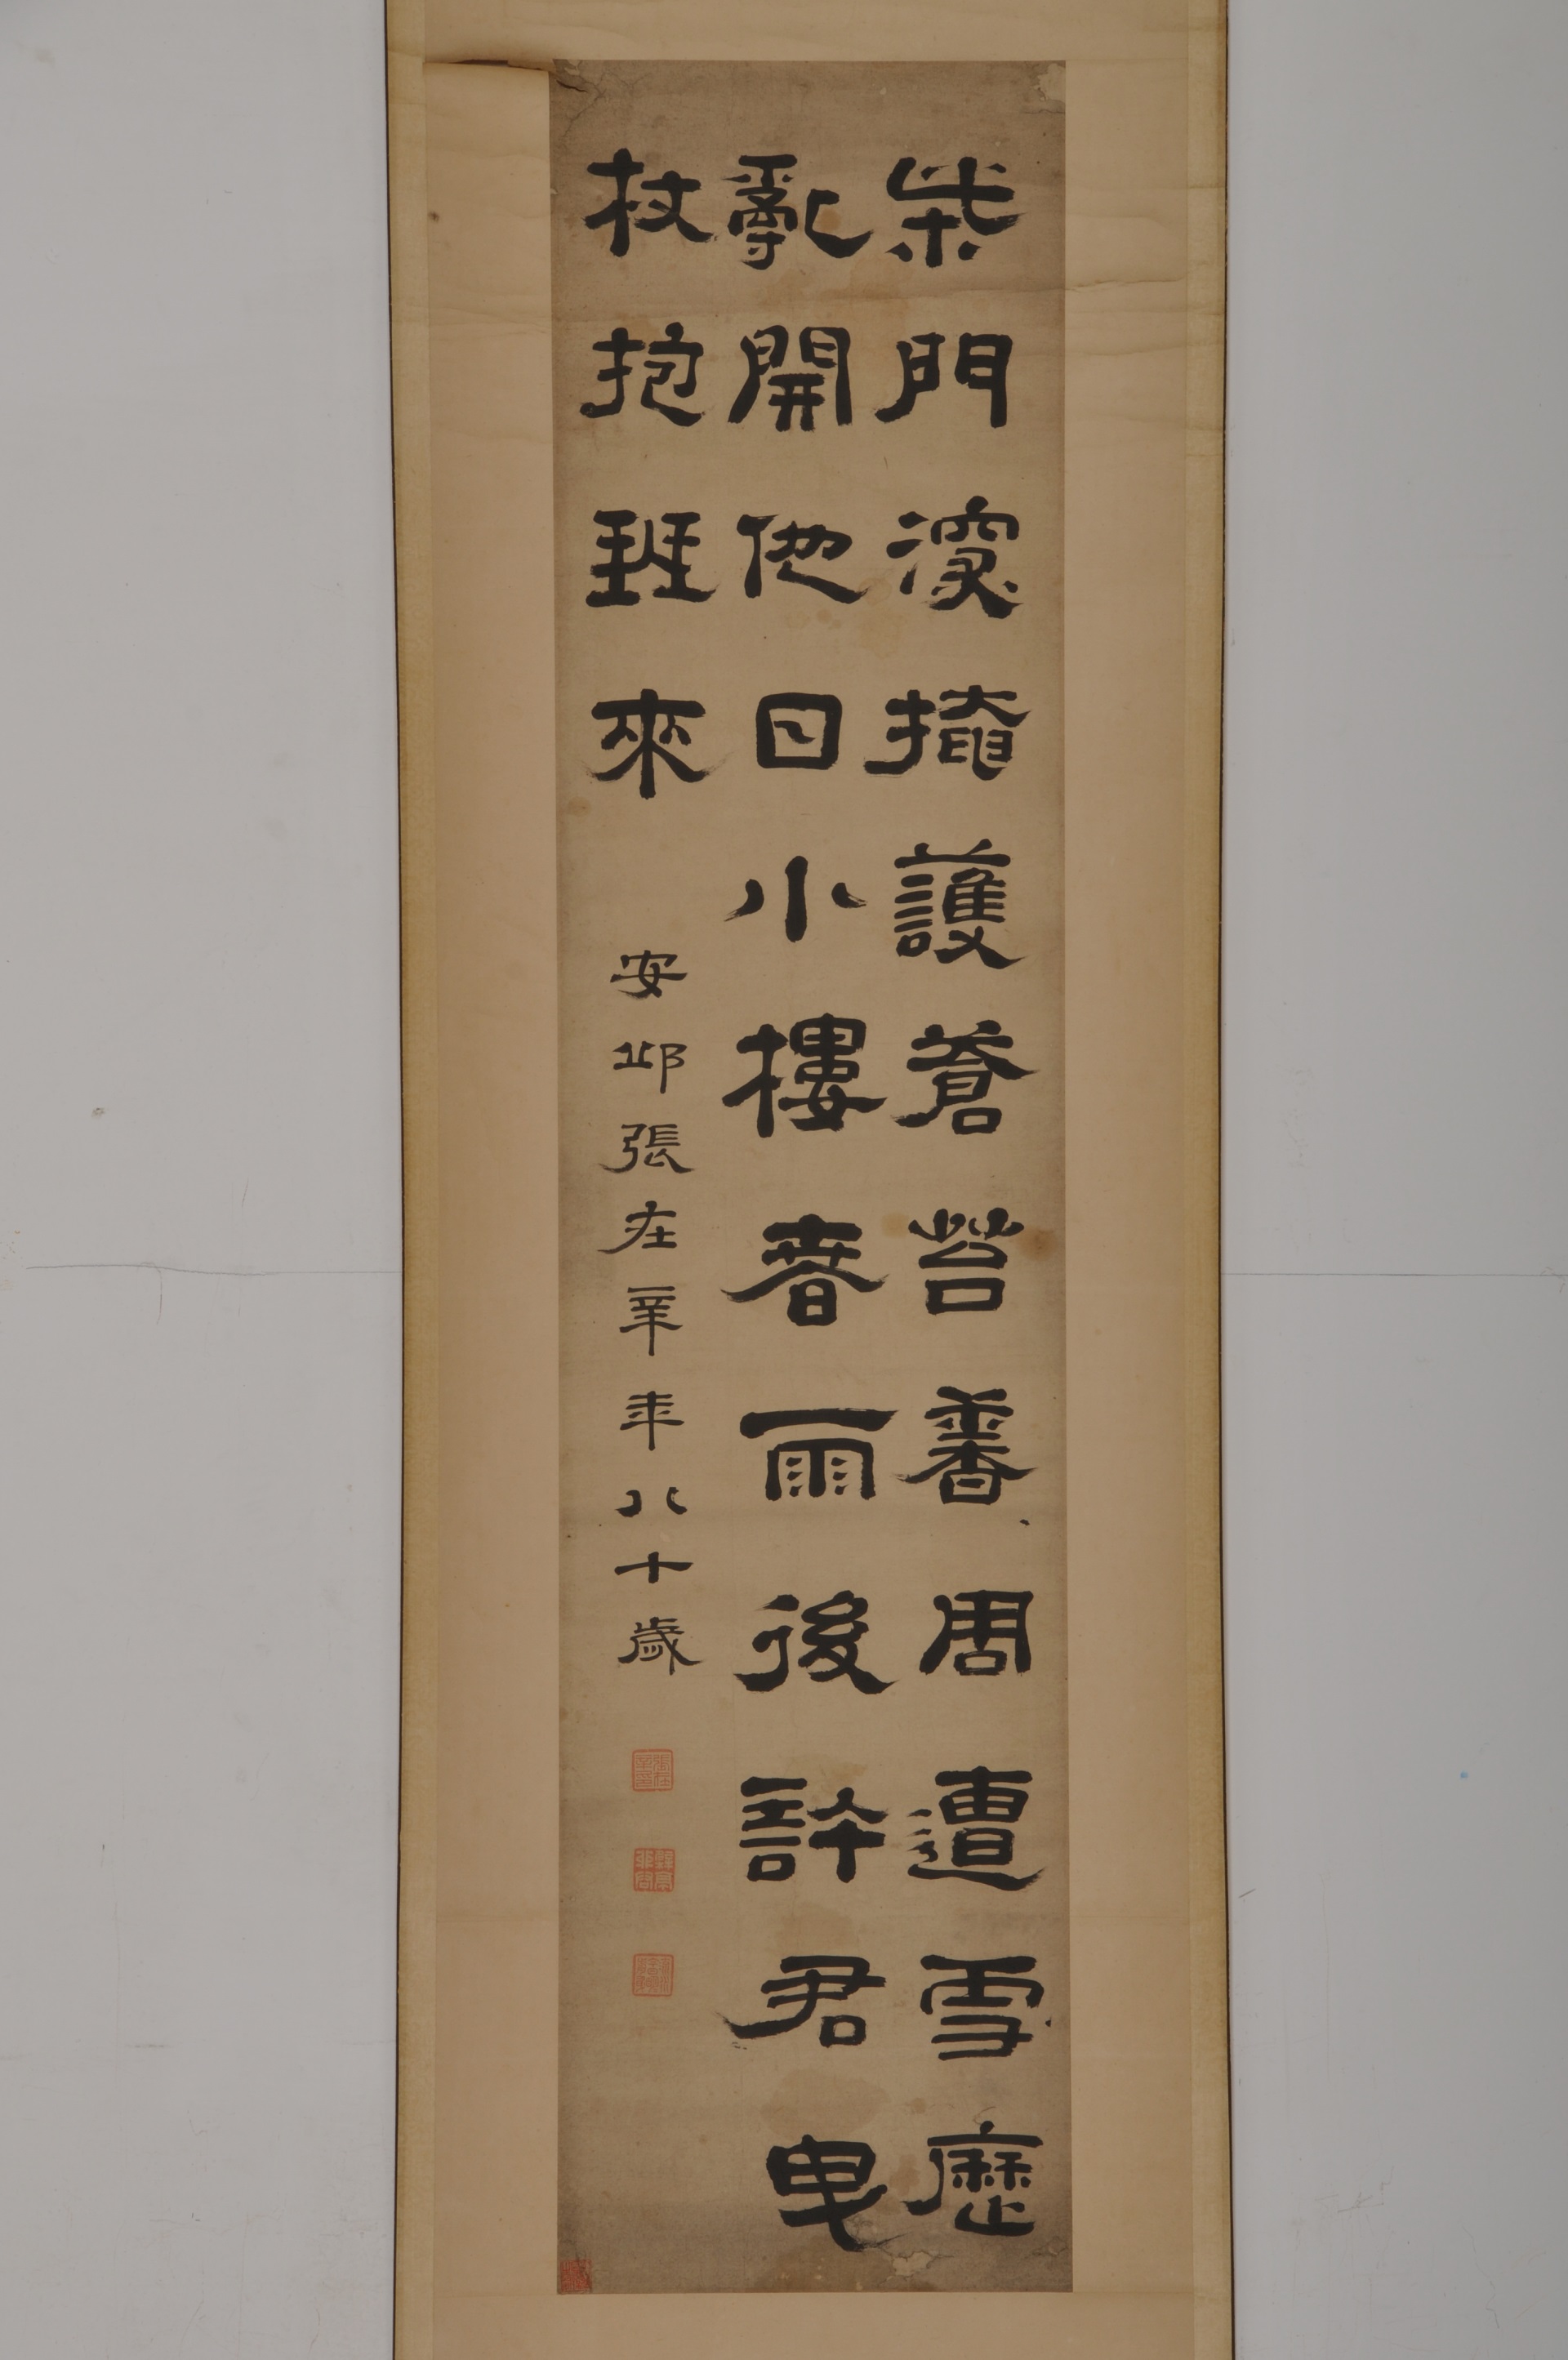 柴門深掩護蒼苔番周遭雪歷
亂開他日小樓春雨後許君曳
杖抱班來
安邱張在辛年八十歲